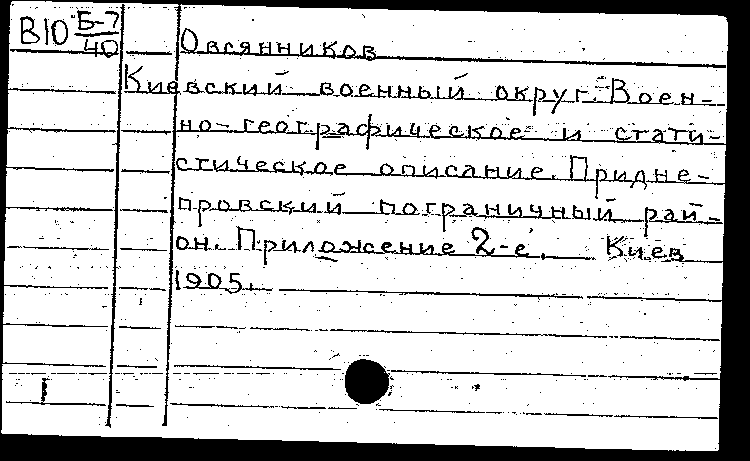 В10 Б-7/40
Овсянников
Киевский военный округ. Воен-
но-географическое и стати-
стическое описание. Придне-
провский пограничный рай-
он. Приложение 2-е. Киев
1905.